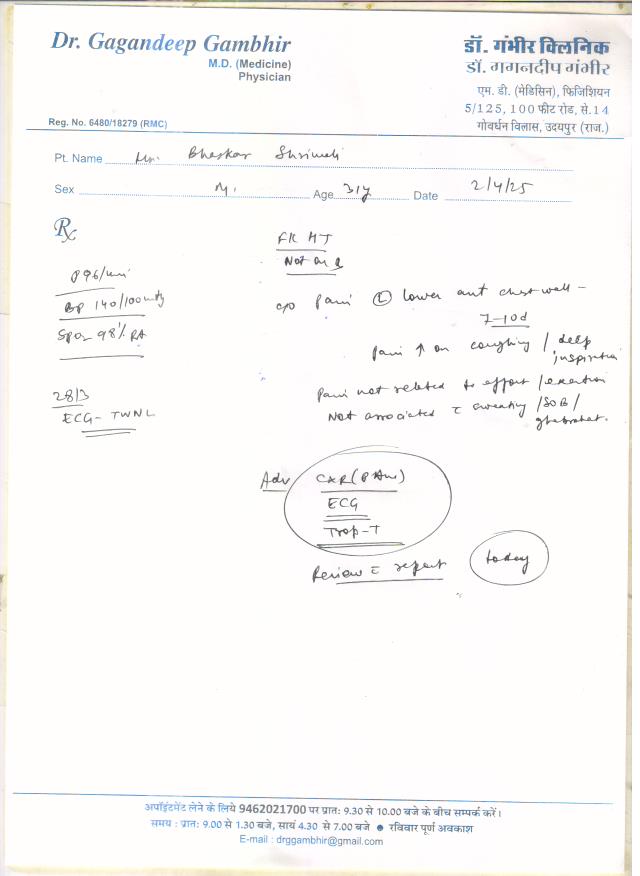 Dr. Gagandeep Gambhir
M.D. (Medicine)
Physician
Reg. No. 6480/18279 (RMC)
डॉ. गंभीर क्लिनिक
डॉ. गगनदीप गंभीर
एम. डी. (मेडिसिन), फिजिशियन
5/125, 100 फीट रोड, से.14
गोवर्धन विलास, उदयपुर (राज.)
Pt. Name Mr. Bhaskar Shrimali
Sex M. Age 31y Date 2/4/25
Rx
P 96/min
BP 140/100 mmHg
SpO2 98% RA
28/3
ECG - TWNL
HT
Not on
c/o Pain (L) lower ant chest wall -
7-10d
Pain ↑ on coughing / deep inspiration
Pain not related to effort / exertion
Not associated c sweating / SOB / ghabrahat.
Adv CXR (PA view)
ECG
Trop-T
Review c report today
अपॉइंटमेंट लेने के लिये 9462021700 पर प्रात: 9.30 से 10.00 बजे के बीच सम्पर्क करें।
समय : प्रात: 9.00 से 1.30 बजे, सायं 4.30 से 7.00 बजे ● रविवार पूर्ण अवकाश
E-mail : drggambhir@gmail.com